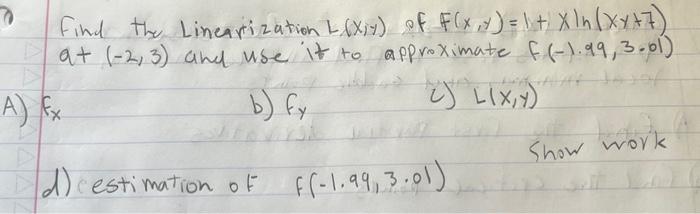 Find the Linearization L(x,y) of F(x,y)=1+ x ln(xy+7)
at (-2,3) and use it to approximate f(-1.99, 3.01)
A) fx b) fy c) L(x,y)
Show work
d) estimation of f(-1.99, 3.01)